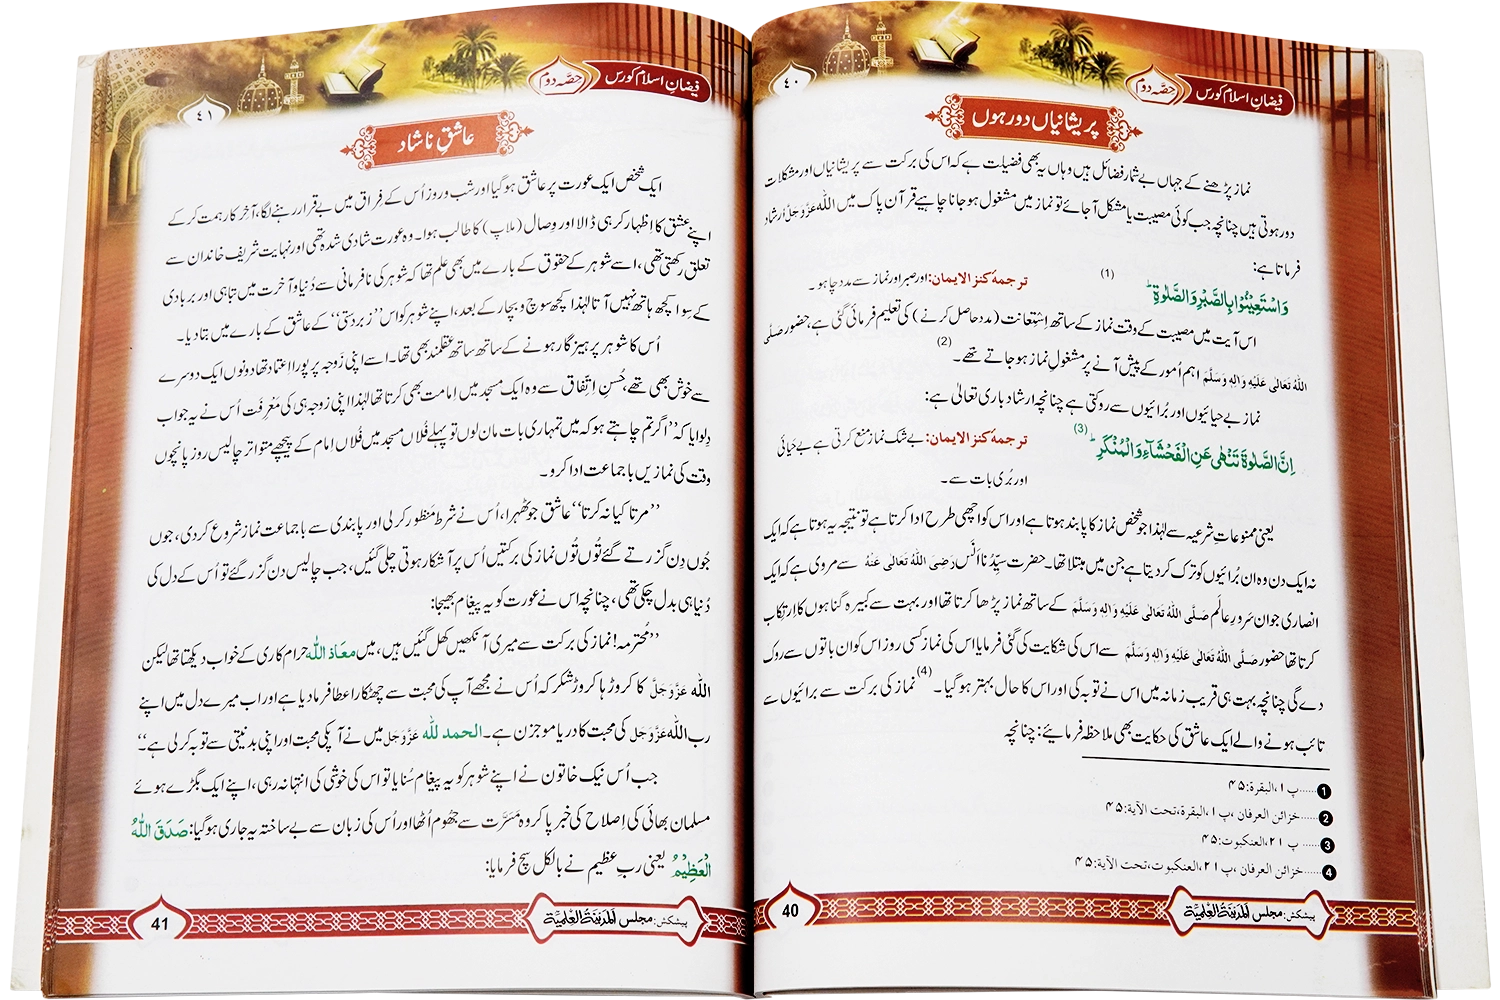 فیضانِ اسلام کورس
حصّہ دوم
٤٠
پریشانیاں دور ہوں
نماز پڑھنے کے جہاں بے شمار فضائل ہیں وہاں یہ بھی فضیلت ہے کہ اس کی برکت سے پریشانیاں اور مشکلات
دور ہوتی ہیں چنانچہ جب کوئی مصیبت یا مشکل آ جائے تو نماز میں مشغول ہو جانا چاہیے قرآن پاک میں اللہ عَزَّوَجَلَّ ارشاد
فرماتا ہے:
وَاسْتَعِیْنُوْا بِالصَّبْرِ وَالصَّلٰوةِ ؕ (1) ترجمۂ کنز الایمان: اور صبر اور نماز سے مدد چاہو ۔
اس آیت میں مصیبت کے وقت نماز کے ساتھ اِسْتِعانت (مدد حاصل کرنے) کی تعلیم فرمائی گئی ہے، حضور صلی
اللہ تَعَالٰی عَلَیْہِ وَاٰلِہٖ وَسَلَّمَ اہم اُمور کے پیش آنے پر مشغول نماز ہو جاتے تھے ۔ (2)
نماز بے حیائیوں اور بُرائیوں سے روکتی ہے چنانچہ ارشاد باری تعالیٰ ہے:
اِنَّ الصَّلٰوةَ تَنْهٰى عَنِ الْفَحْشَآءِ وَالْمُنْكَرِ ؕ (3) ترجمۂ کنز الایمان: بے شک نماز منع کرتی ہے بے حیائی
اور بُری بات سے ۔
یعنی ممنوعاتِ شرعیہ سے لہٰذا جو شخص نماز کا پابند ہوتا ہے اور اس کو اچھی طرح ادا کرتا ہے تو نتیجہ یہ ہوتا ہے کہ ایک
نہ ایک دن وہ ان بُرائیوں کو ترک کر دیتا ہے جن میں مبتلا تھا۔ حضرت سیِّدُنا اَنَس رَضِیَ اللہُ تَعَالٰی عَنْہُ سے مروی ہے کہ ایک
انصاری جوان سَرورِ عالَم صَلَّی اللہُ تَعَالٰی عَلَیْہِ وَاٰلِہٖ وَسَلَّمَ کے ساتھ نماز پڑھا کرتا تھا اور بہت سے کبیرہ گناہوں کا اِرتِکاب
کرتا تھا حضور صَلَّی اللہُ تَعَالٰی عَلَیْہِ وَاٰلِہٖ وَسَلَّمَ سے اس کی شکایت کی گئی فرمایا اس کی نماز کسی روز اس کو ان باتوں سے روک
دے گی چنانچہ بہت ہی قریب زمانہ میں اس نے توبہ کی اور اس کا حال بہتر ہو گیا ۔ (4) نماز کی برکت سے برائیوں سے
تائب ہونے والے ایک عاشق کی حکایت بھی ملاحظہ فرمائیے: چنانچہ
1 ......پ ۱، البقرة: ۴۵
2 ......خزائن العرفان، پ ۱، البقرة، تحت الآیة: ۴۵
3 ...... پ ۲۱، العنکبوت: ۴۵
4 ......خزائن العرفان، پ ۲۱، العنکبوت، تحت الآیة: ۴۵
پیشکش: مجلس اَلْمَدِیْنَۃُ الْعِلْمِیَّۃ
40
فیضانِ اسلام کورس
حصّہ دوم
٤١
عاشقِ ناشاد
ایک شخص ایک عورت پر عاشق ہو گیا اور شب و روز اُس کے فِراق میں بے قرار رہنے لگا، آخِر کار ہمت کر کے
اپنے عشق کا اِظہار کر ہی ڈالا اور وِصال (ملاپ) کا طالب ہوا۔ وہ عورت شادی شدہ تھی اور نہایت شریف خاندان سے
تعلق رکھتی تھی، اسے شوہر کے حقوق کے بارے میں بھی علم تھا کہ شوہر کی نافرمانی سے دُنیا و آخرت میں تباہی اور بربادی
کے سِوا کچھ ہاتھ نہیں آتا لہٰذا کچھ سوچ وبچار کے بعد، اپنے شوہر کو اس ”زبردستی“ کے عاشق کے بارے میں بتا دیا ۔
اُس کا شوہر پرہیزگار ہونے کے ساتھ ساتھ عقلمند بھی تھا۔ اسے اپنی زَوجہ پر پورا اعتماد تھا دونوں ایک دوسرے
سے خوش بھی تھے، حُسنِ اِتِّفاق سے وہ ایک مسجد میں اِمامت بھی کرتا تھا لہٰذا اپنی زوجہ ہی کی مَعْرِفَت اُس نے یہ جواب
دِلوایا کہ ”اگر تم چاہتے ہو کہ میں تمہاری بات مان لوں تو پہلے فُلاں مسجد میں فُلاں اِمام کے پیچھے متواتر چالیس روز پانچوں
وقت کی نمازیں باجماعت ادا کرو ۔
”مرتا کیا نہ کرتا“ عاشق جو ٹھہرا، اُس نے شرط مَنظور کر لی اور پابندی سے باجماعت نماز شروع کر دی، جوں
جُوں دِن گزرتے گئے تُوں تُوں نماز کی برکتیں اُس پر آشکار ہوتی چلی گئیں، جب چالیس دن گزر گئے تو اُس کے دل کی
دُنیا ہی بدل چکی تھی، چنانچہ اس نے عورت کو یہ پیغام بھیجا:
”مُحترمہ! نماز کی برکت سے میری آنکھیں کھل گئیں ہیں، میں معاذ اللہ حرام کاری کے خواب دیکھتا تھا لیکن
اللہ عَزَّوَجَلَّ کا کروڑ ہا کروڑ شکر کہ اُس نے مجھے آپ کی محبت سے چھٹکارا عطا فرما دیا ہے اور اب میرے دل میں اپنے
رب اللہ عَزَّوَجَلَّ کی محبت کا دریا موجزن ہے۔ الحمد للہ عَزَّوَجَلَّ میں نے آپکی محبت اور اپنی بدنیتی سے توبہ کر لی ہے“
جب اُس نیک خاتون نے اپنے شوہر کو یہ پیغام سُنایا تو اس کی خوشی کی انتہا نہ رہی، اپنے ایک بگڑے ہوئے
مسلمان بھائی کی اِصلاح کی خبر پا کر وہ مَسَرَّت سے جُھوم اُٹھا اور اُس کی زبان سے بے ساختہ یہ جاری ہو گیا: صَدَقَ اللہُ
الْعَظِیْمُ یعنی ربِ عظیم نے بالکل سچ فرمایا:
پیشکش: مجلس اَلْمَدِیْنَۃُ الْعِلْمِیَّۃ
41